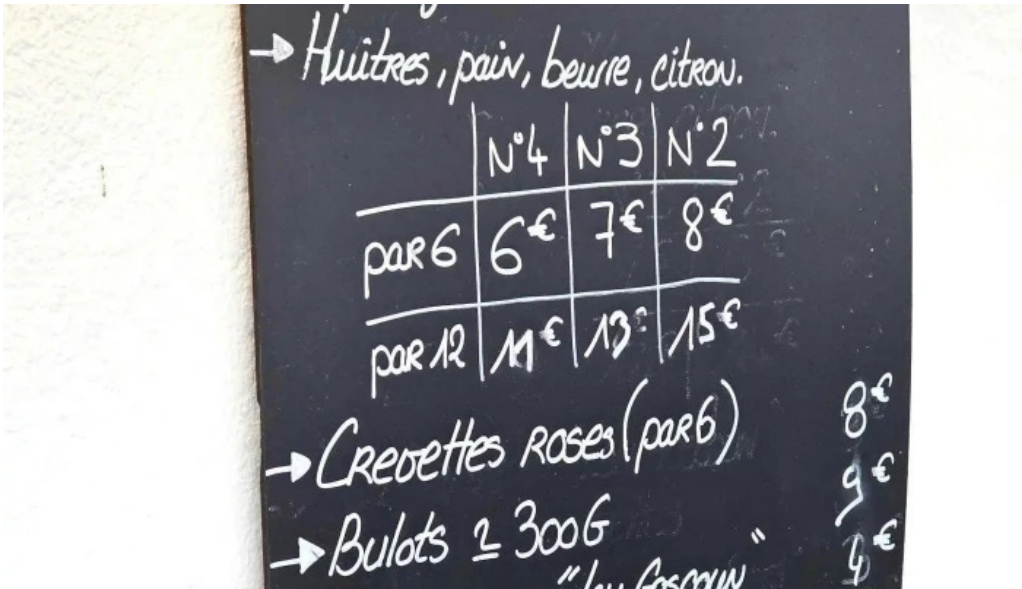 → Huîtres, pain, beurre, citron.
N°4 N°3 N°2
par 6 6€ 7€ 8€
par 12 11€ 13€ 15€
→ Crevettes roses (par 6) 8€
→ Bulots ≃ 300G 9€
" " 4€